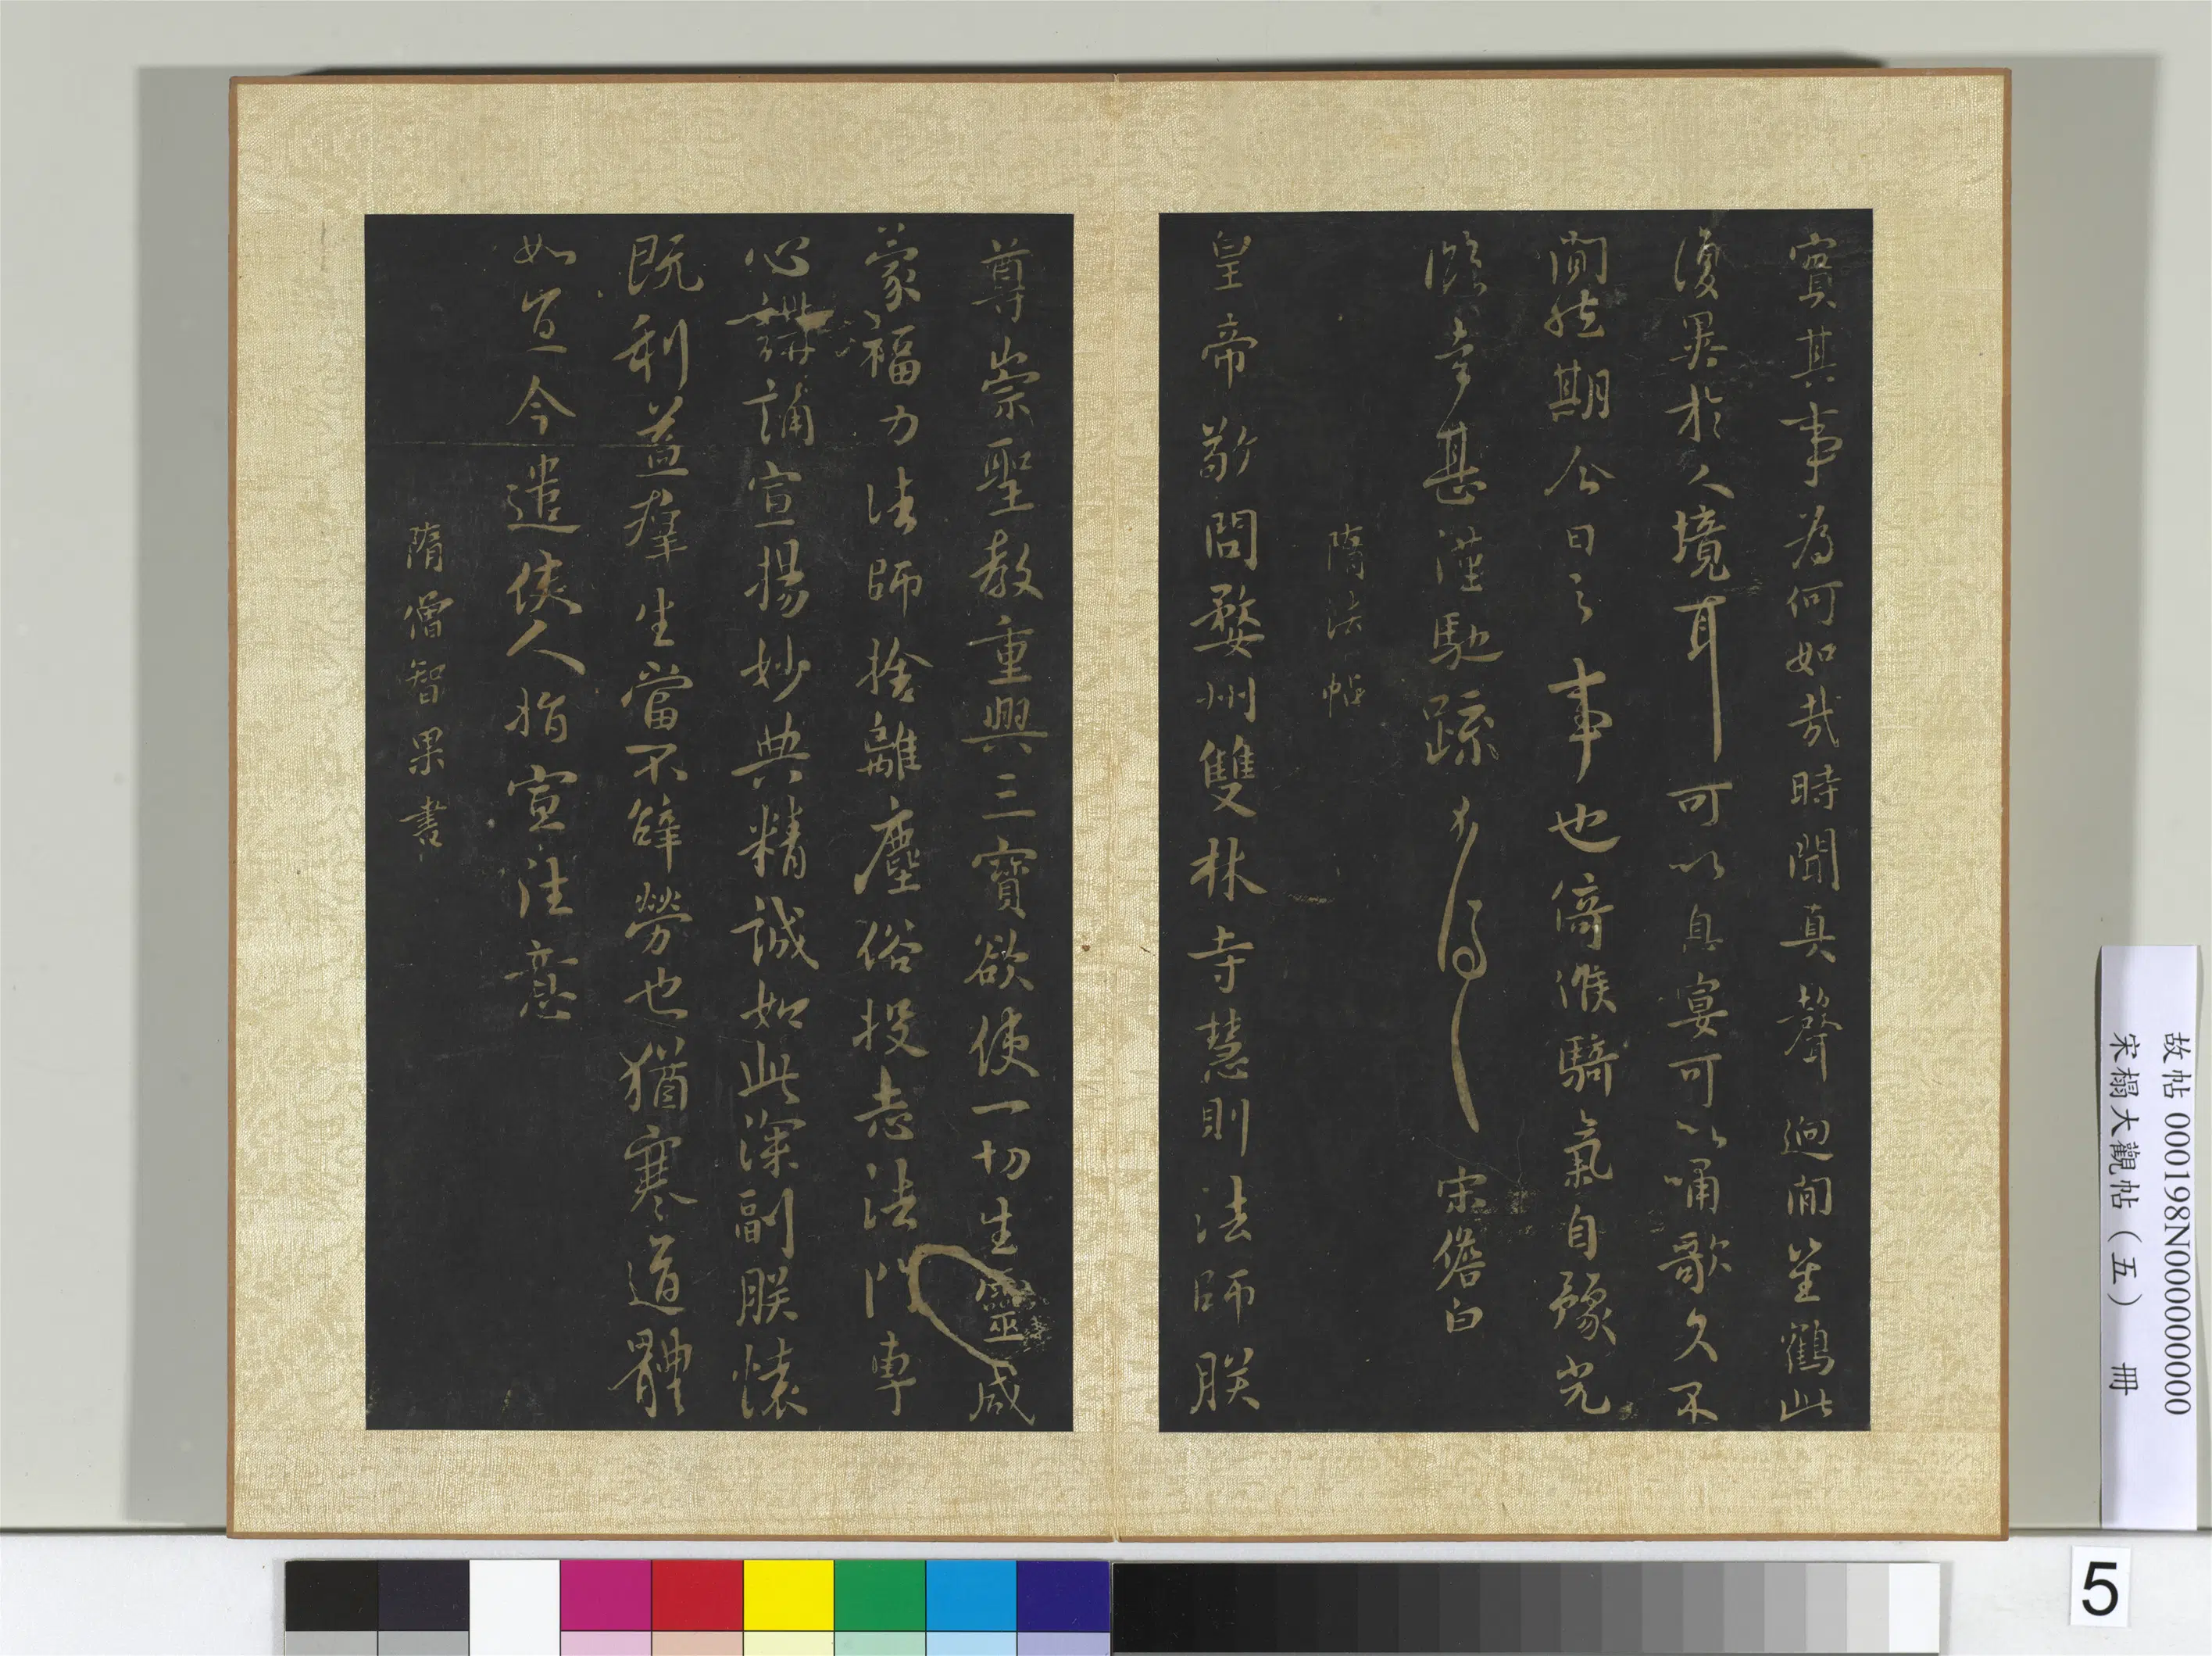 賓其事為何如哉時聞真聲迥閒崔鶴此
復異於人境耳可以具宴可以誦歌久不
閒然期公日之事也倚候騎氣自豫光
臨幸甚謹馳疏 宋儋白
隋法帖
皇帝敬問婺州雙林寺慧則法師朕
尊崇聖教重興三寶欲使一切生靈咸
蒙福力法師捨離塵俗投志法門專
心講誦宣揚妙典精誠如此深副朕懷
既利益群生當不辭勞也猶寒道體
如宜今遣使人指宣往意
隋僧智果書
故帖 000198N000000000
宋榻大觀帖(五) 冊
5